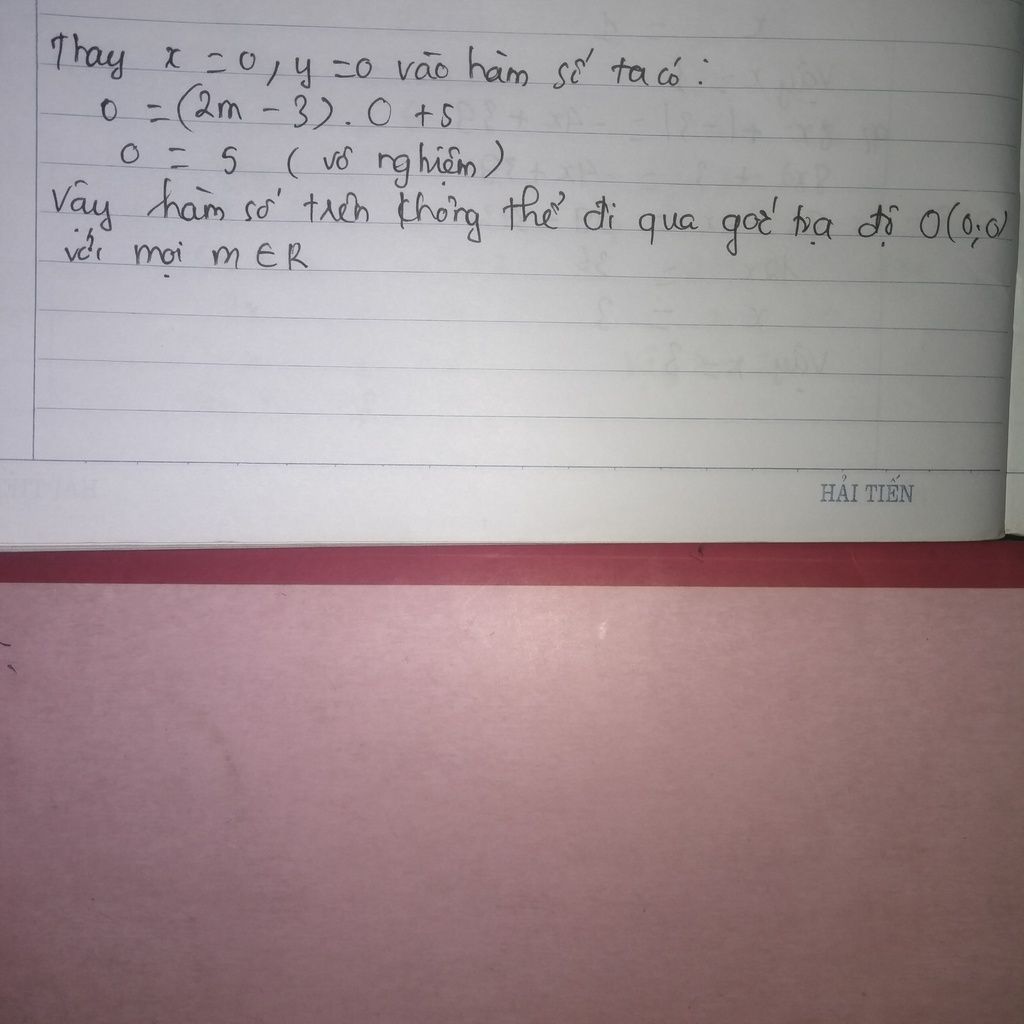 Thay x = 0, y = 0 vào hàm số ta có:
0 = (2m - 3). 0 + 5
0 = 5 (vô nghiệm)
Vậy hàm số trên không thể đi qua gốc tọa độ O(0;0
với mọi m ∈ R
HẢI TIẾN